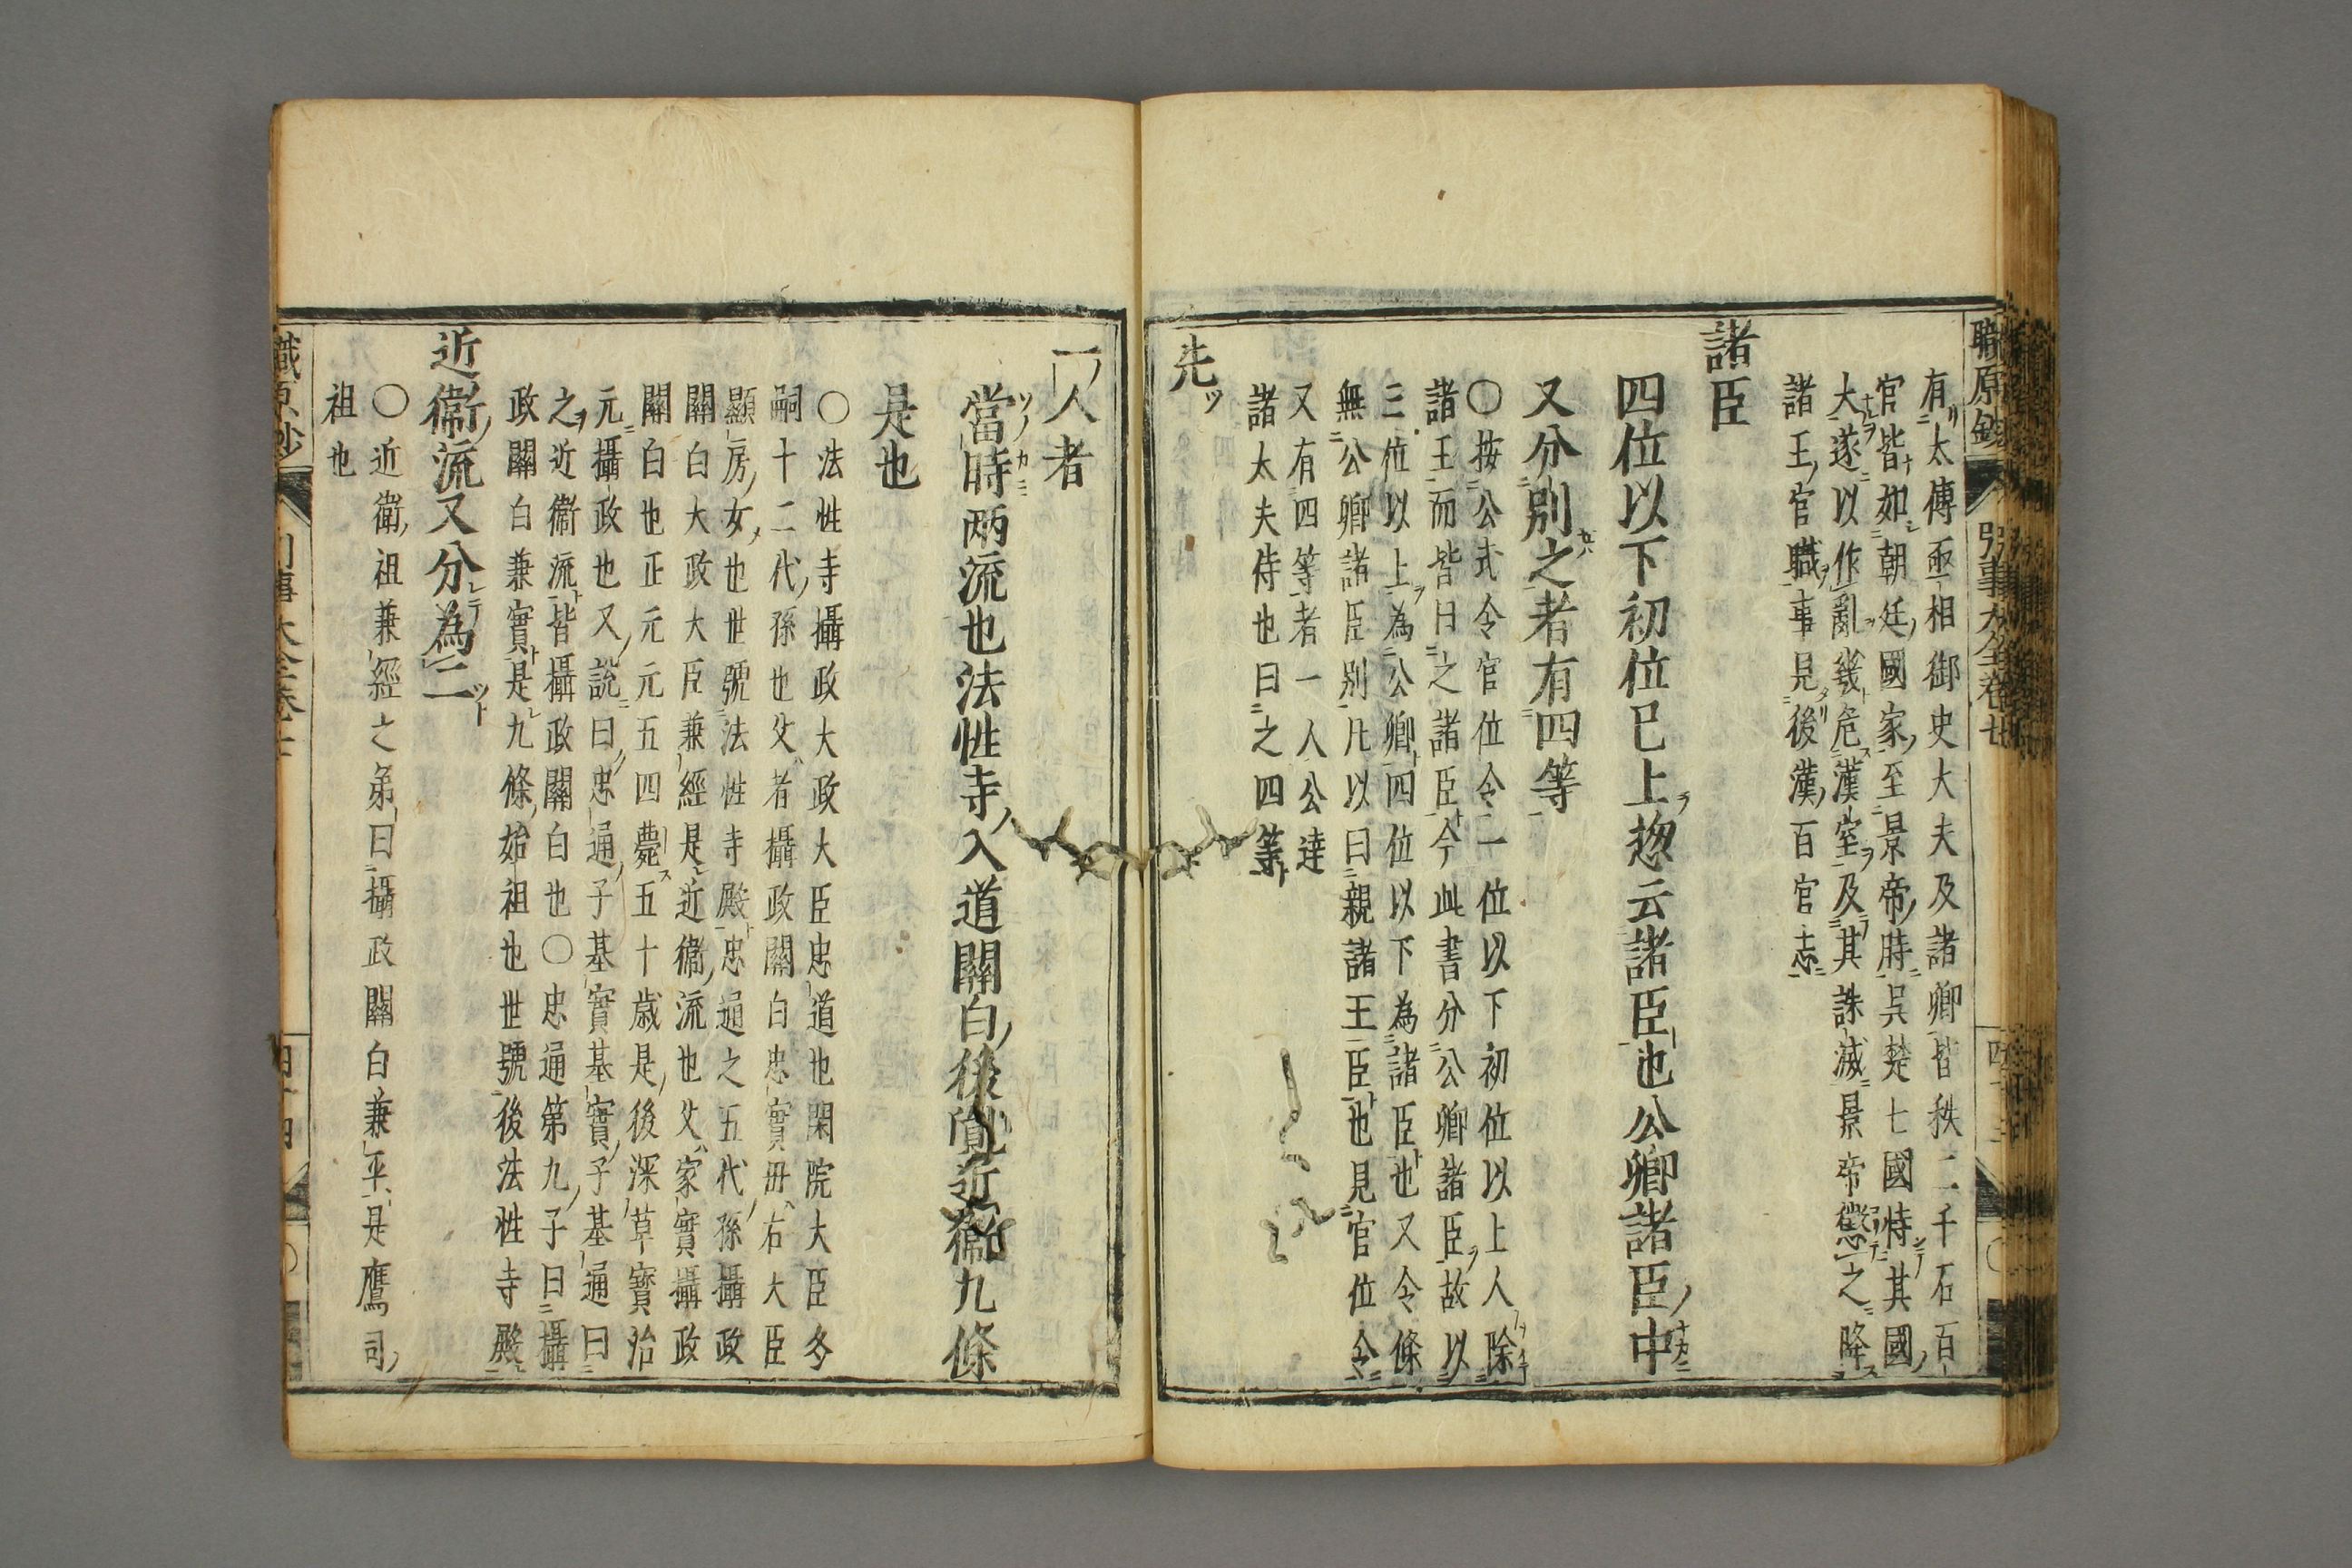 職原鈔 引事大全卷廿
有太傅亟相御史大夫及諸卿皆秩二千石百
官皆如朝廷國家至景帝時呉楚七國恃其國
大遂以作亂幾危漢室及其誅滅景帝懲之降
諸王官職事見後漢百官志
諸臣
四位以下初位已上惣云諸臣也公卿諸臣中
又分別之者有四等
〇按公式令官位令二位以下初位以上人除
諸王而皆曰之諸臣今此書分公卿諸臣故以
三位以上為公卿四位以下為諸臣也又令條
無公卿諸臣別凡以曰親諸王臣也見官位令
又有四等者一人公達
諸太夫侍也曰之四等
先ツ
一ノ人者
當時两流也法性寺入道關白後胤近衞九條
是也
〇法性寺攝政大政大臣忠道也閑院大臣冬
嗣十二代孫也父者攝政關白忠實毋右大臣
顯房女也世號法性寺殿忠通之五代孫攝政
關白大政大臣兼經是近衞流也父家實攝政
關白也正元元五四薨五十歳是後深草寳治
元攝政也又説曰忠通子基實基實子基通曰
之近衞流皆攝政關白也〇忠通第九子曰攝
政關白兼實是九條始祖也世號後法性寺殿
近衞流又分為二
〇近衞祖兼經之弟曰攝政關白兼平是鷹司
祖也